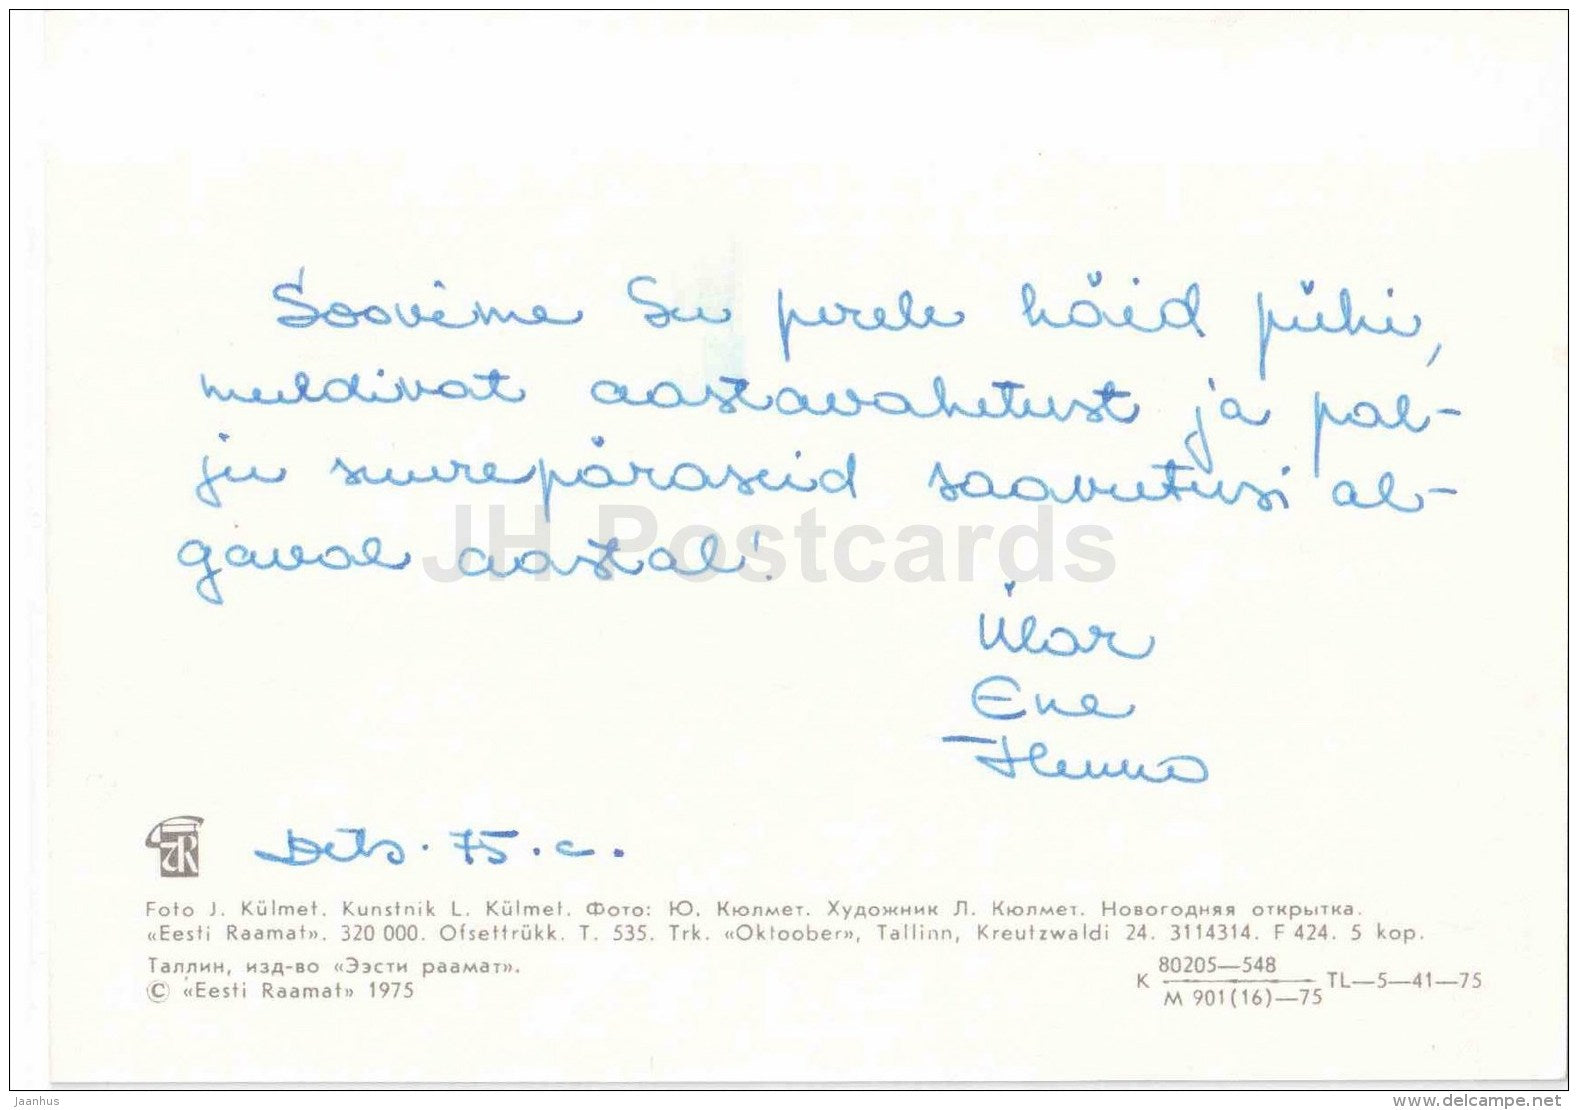 Soovime Su perele häid pühi,
meeldivat aastavahetust ja pal-
ju suurepäraseid saavutusi al-
gaval aastal!
JH Postcards
Ülar
Ene
Henno
Dets. 75.a.
Foto J. Külmet. Kunstnik L. Külmet. Фото: Ю. Кюлмет. Художник Л. Кюлмет. Новогодняя открытка.
«Eesti Raamat». 320 000. Ofsettrükk. T. 535. Trk. «Oktoober», Tallinn, Kreutzwaldi 24. 3114314. F 424. 5 kop.
Таллин, изд-во «Ээсти раамат».
© «Eesti Raamat» 1975
К 80205—548 TL—5—41—75
М 901(16)—75
Jaanhus
www.delcampe.net